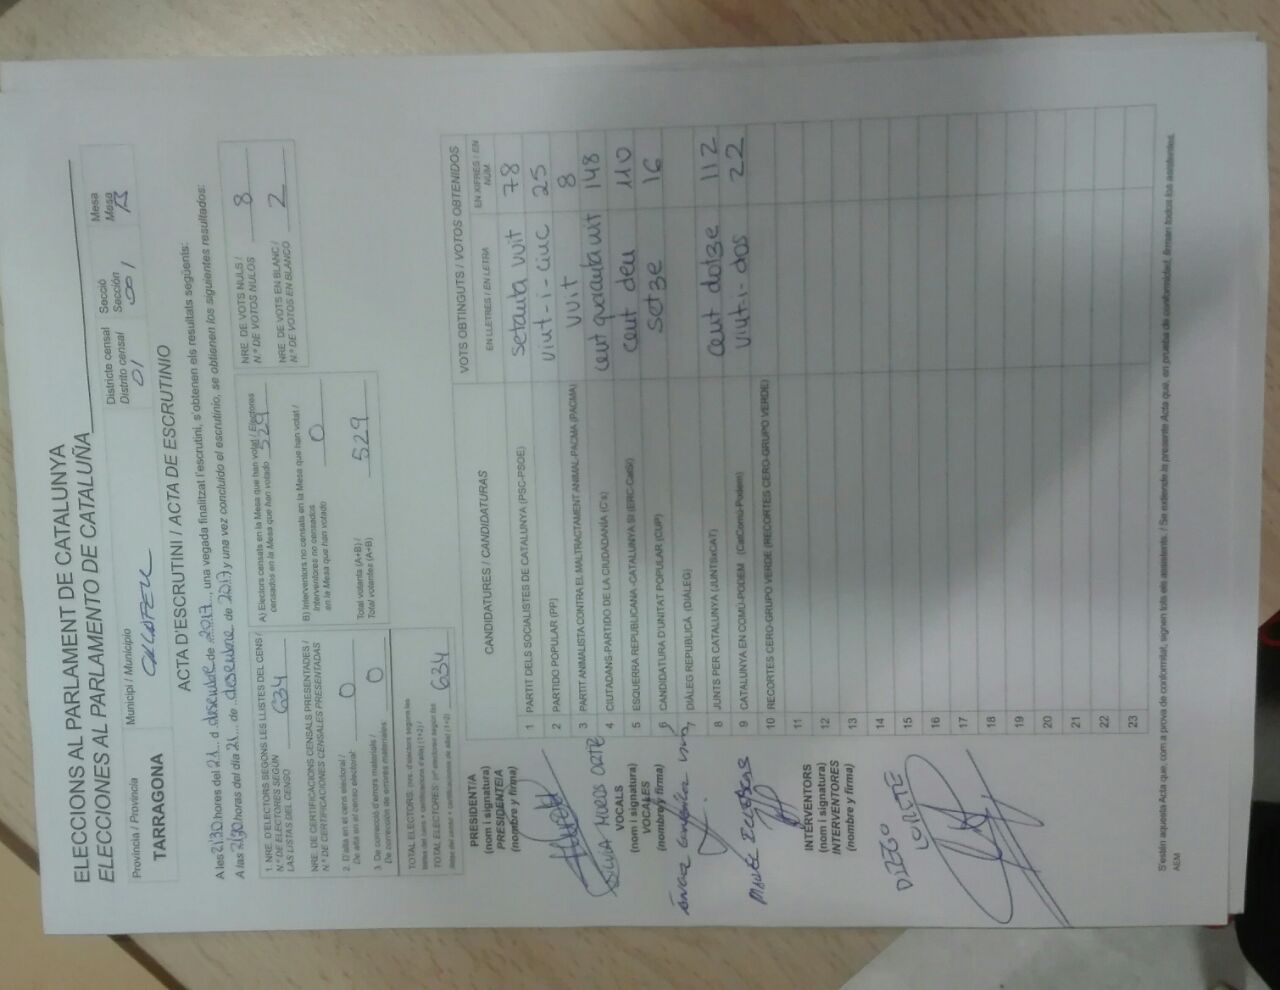 ELECCIONS AL PARLAMENT DE CATALUNYA
ELECCIONES AL PARLAMENTO DE CATALUÑA
Província / Provincia
TARRAGONA
Municipi / Municipio
CALAFELL
Districte censal
Distrito censal
01
Secció
Sección
001
Mesa
Mesa
B
ACTA D'ESCRUTINI / ACTA DE ESCRUTINIO
A les 21'30 hores del 21 d desembre de 2017, una vegada finalitzat l'escrutini, s'obtenen els resultats següents:
A las 21'30 horas del día 21 de desembre de 2017 y una vez concluido el escrutinio, se obtienen los siguientes resultados:
1. NRE. D'ELECTORS SEGONS LES LLISTES DEL CENS /
N.º DE ELECTORES SEGÚN
LAS LISTAS DEL CENSO 634
NRE. DE CERTIFICACIONS CENSALS PRESENTADES /
N.º DE CERTIFICACIONES CENSALES PRESENTADAS
2. D'alta en el cens electoral /
De alta en el censo electoral: 0
3. De correcció d'errors materials /
De corrección de errores materiales 0
TOTAL ELECTORES 634
A) Electors censats en la Mesa que han votat / Electores
censados en la Mesa que han votado 529
B) Interventors no censats en la Mesa que han votat /
Interventores no censados
en la Mesa que han votado 0
Total votants (A+B) /
Total votantes (A+B) 529
NRE. DE VOTS NULS /
N.º DE VOTOS NULOS 8
NRE. DE VOTS EN BLANC /
N.º DE VOTOS EN BLANCO 2
CANDIDATURES / CANDIDATURAS
VOTS OBTINGUTS / VOTOS OBTENIDOS
EN LLETRES / EN LETRA
EN XIFRES / EN NÚM
1 PARTIT DELS SOCIALISTES DE CATALUNYA (PSC-PSOE) setanta vuit 78
2 PARTIDO POPULAR (PP) vint-i-cinc 25
3 PARTIT ANIMALISTA CONTRA EL MALTRACTAMENT ANIMAL-PACMA (PACMA) vuit 8
4 CIUTADANS-PARTIDO DE LA CIUDADANÍA (C's) cent quaranta vuit 148
5 ESQUERRA REPUBLICANA-CATALUNYA SÍ (ERC-CatSí) cent deu 110
6 CANDIDATURA D'UNITAT POPULAR (CUP) setze 16
7 DIÀLEG REPUBLICÀ (DIÀLEG)
8 JUNTS PER CATALUNYA (JUNTSxCAT) cent dotze 112
9 CATALUNYA EN COMÚ-PODEM (CatComú-Podem) vint-i-dos 22
10 RECORTES CERO-GRUPO VERDE (RECORTES CERO-GRUPO VERDE)
11
12
13
14
15
16
17
18
19
20
21
22
23
PRESIDENT/A
(nom i signatura)
PRESIDENTE/A
(nombre y firma)
VOCALS
(nom i signatura)
VOCALES
(nombre y firma)
INTERVENTORS
(nom i signatura)
INTERVENTORES
(nombre y firma)
DIEGO
S'estén aquesta Acta que, com a prova de conformitat, signen tots els assistents. / Se extiende la presente Acta que, en prueba de conformidad, firman todos los asistentes.
AEM